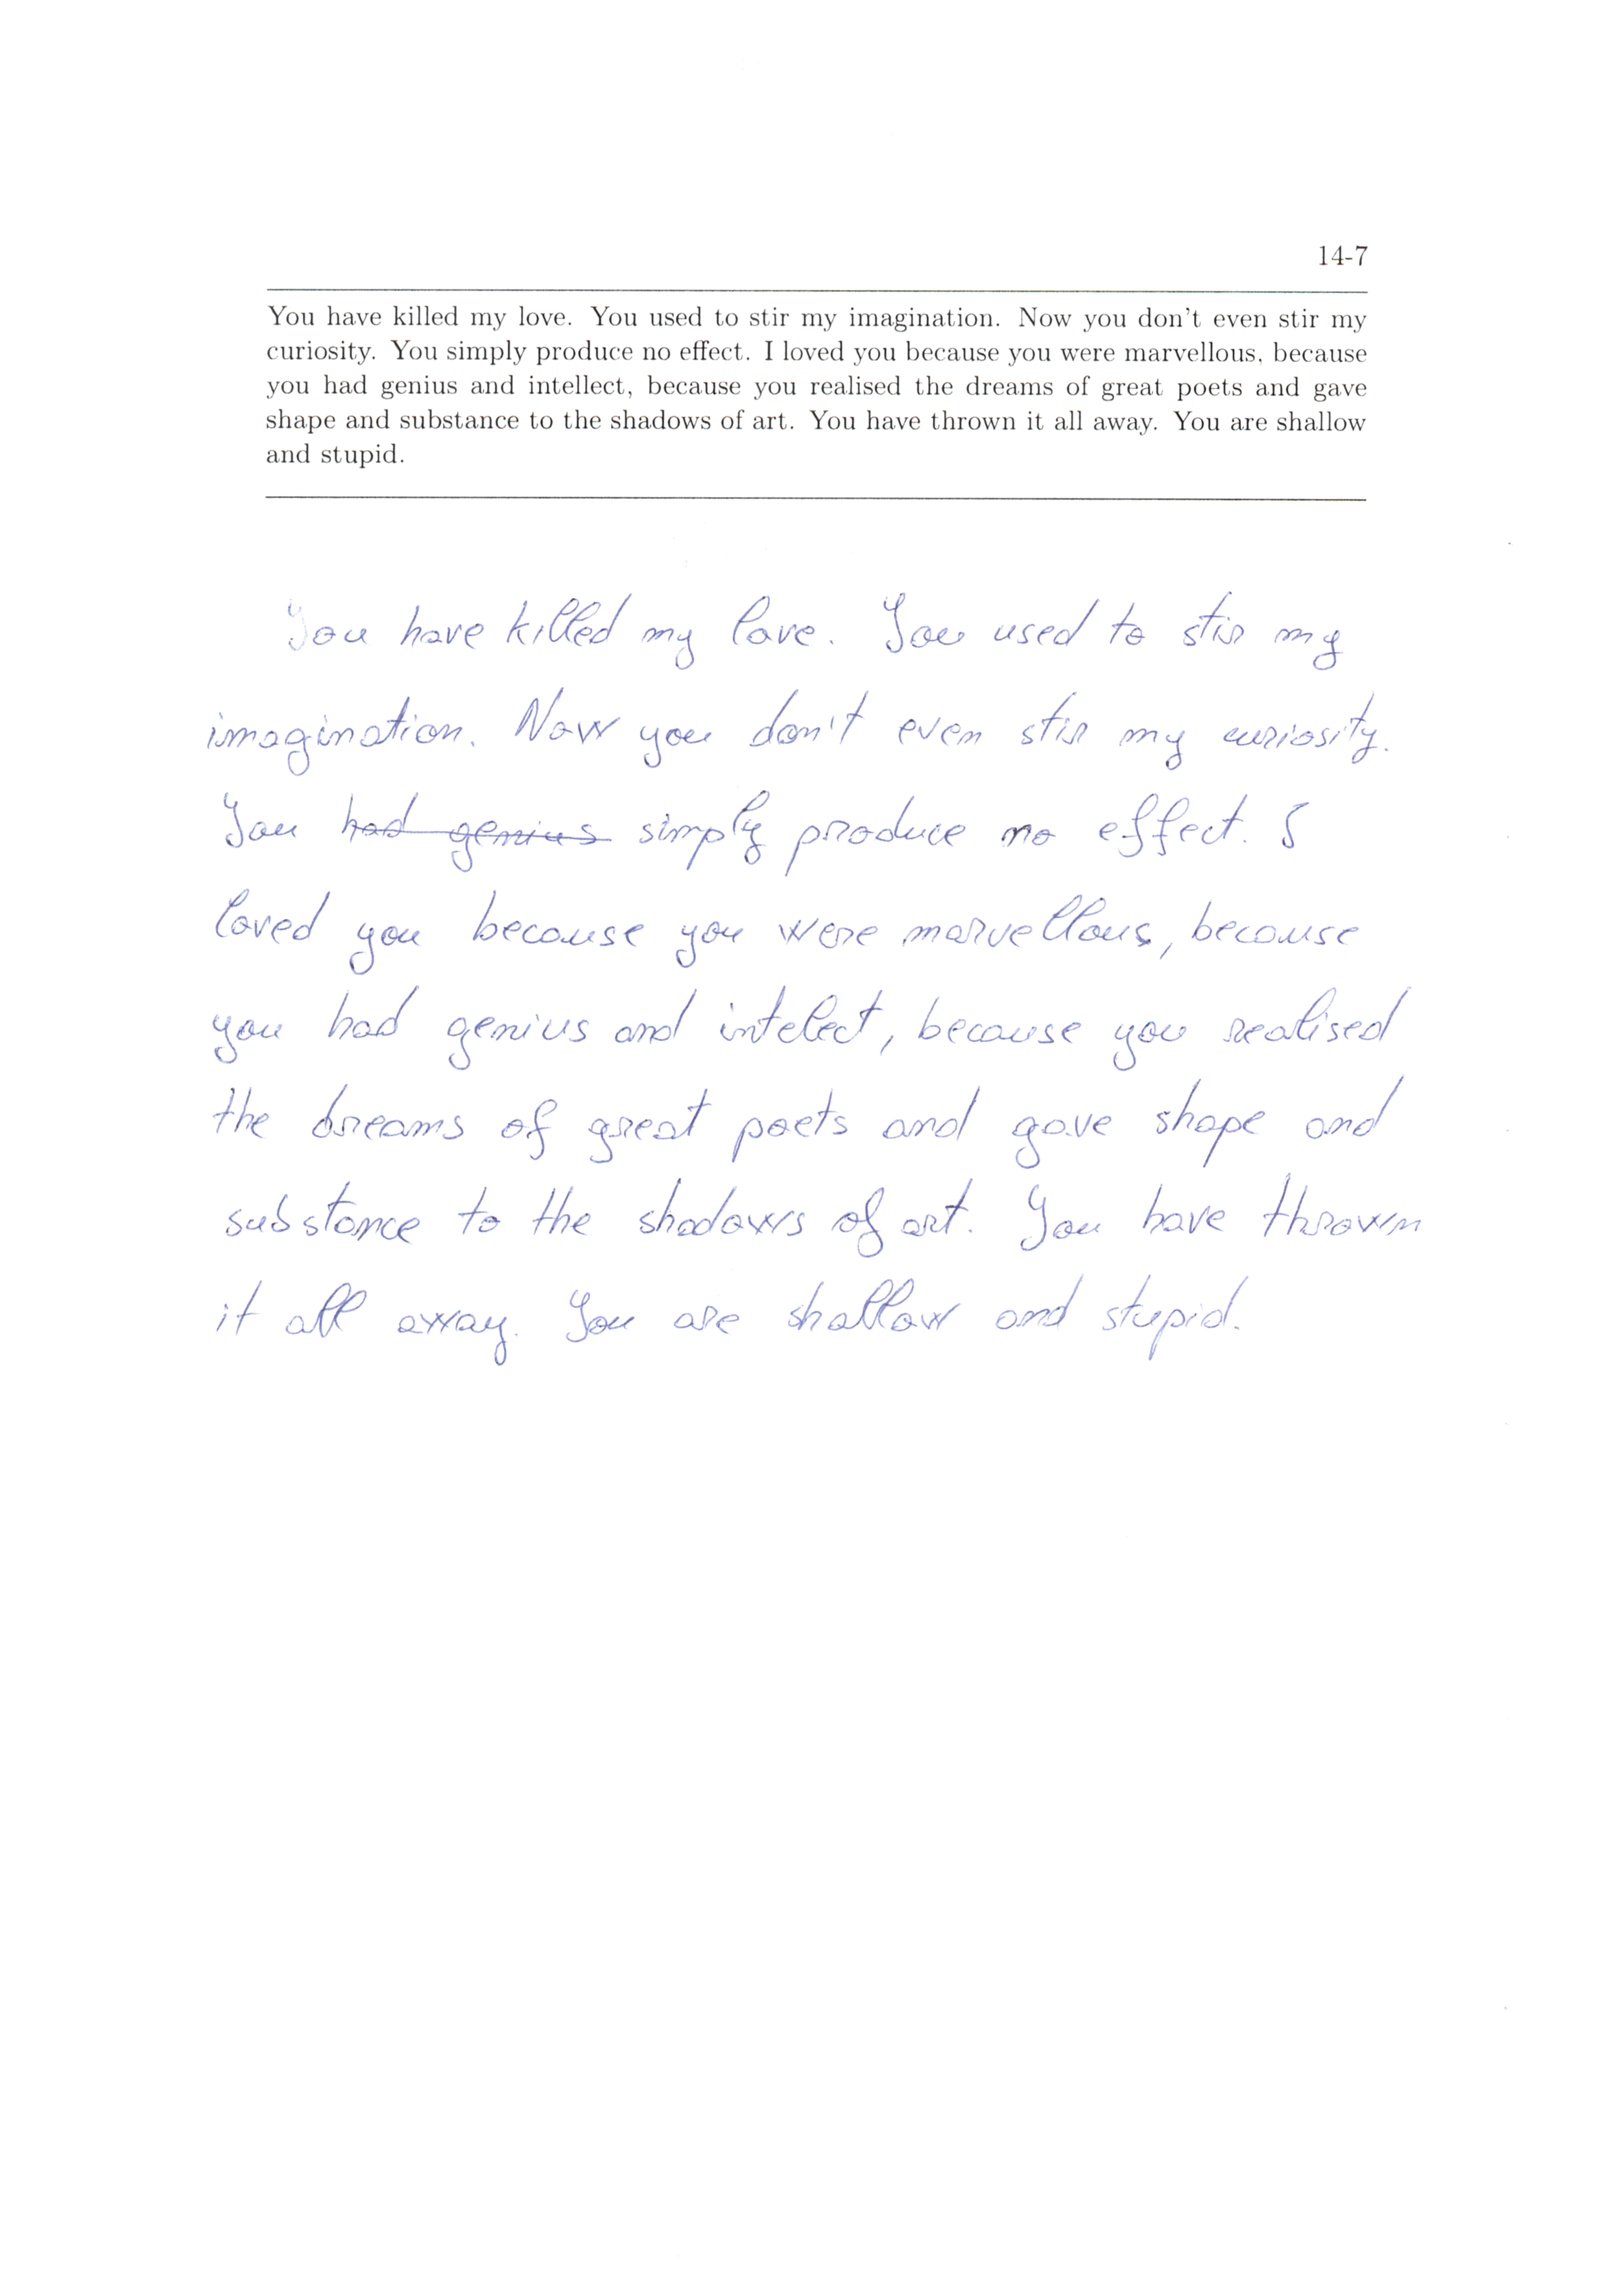 14-7
You have killed my love. You used to stir my imagination. Now you don't even stir my
curiosity. You simply produce no effect. I loved you because you were marvellous, because
you had genius and intellect, because you realised the dreams of great poets and gave
shape and substance to the shadows of art. You have thrown it all away. You are shallow
and stupid.
You have killed my love. You used to stir my
imagination. Now you don't even stir my curiosity.
You had genius simply produce no effect. I
loved you because you were marvellous, because
you had genius and intelect, because you realised
the dreams of great poets and gave shape and
substance to the shadows of art. You have thrown
it all away. You are shallow and stupid.